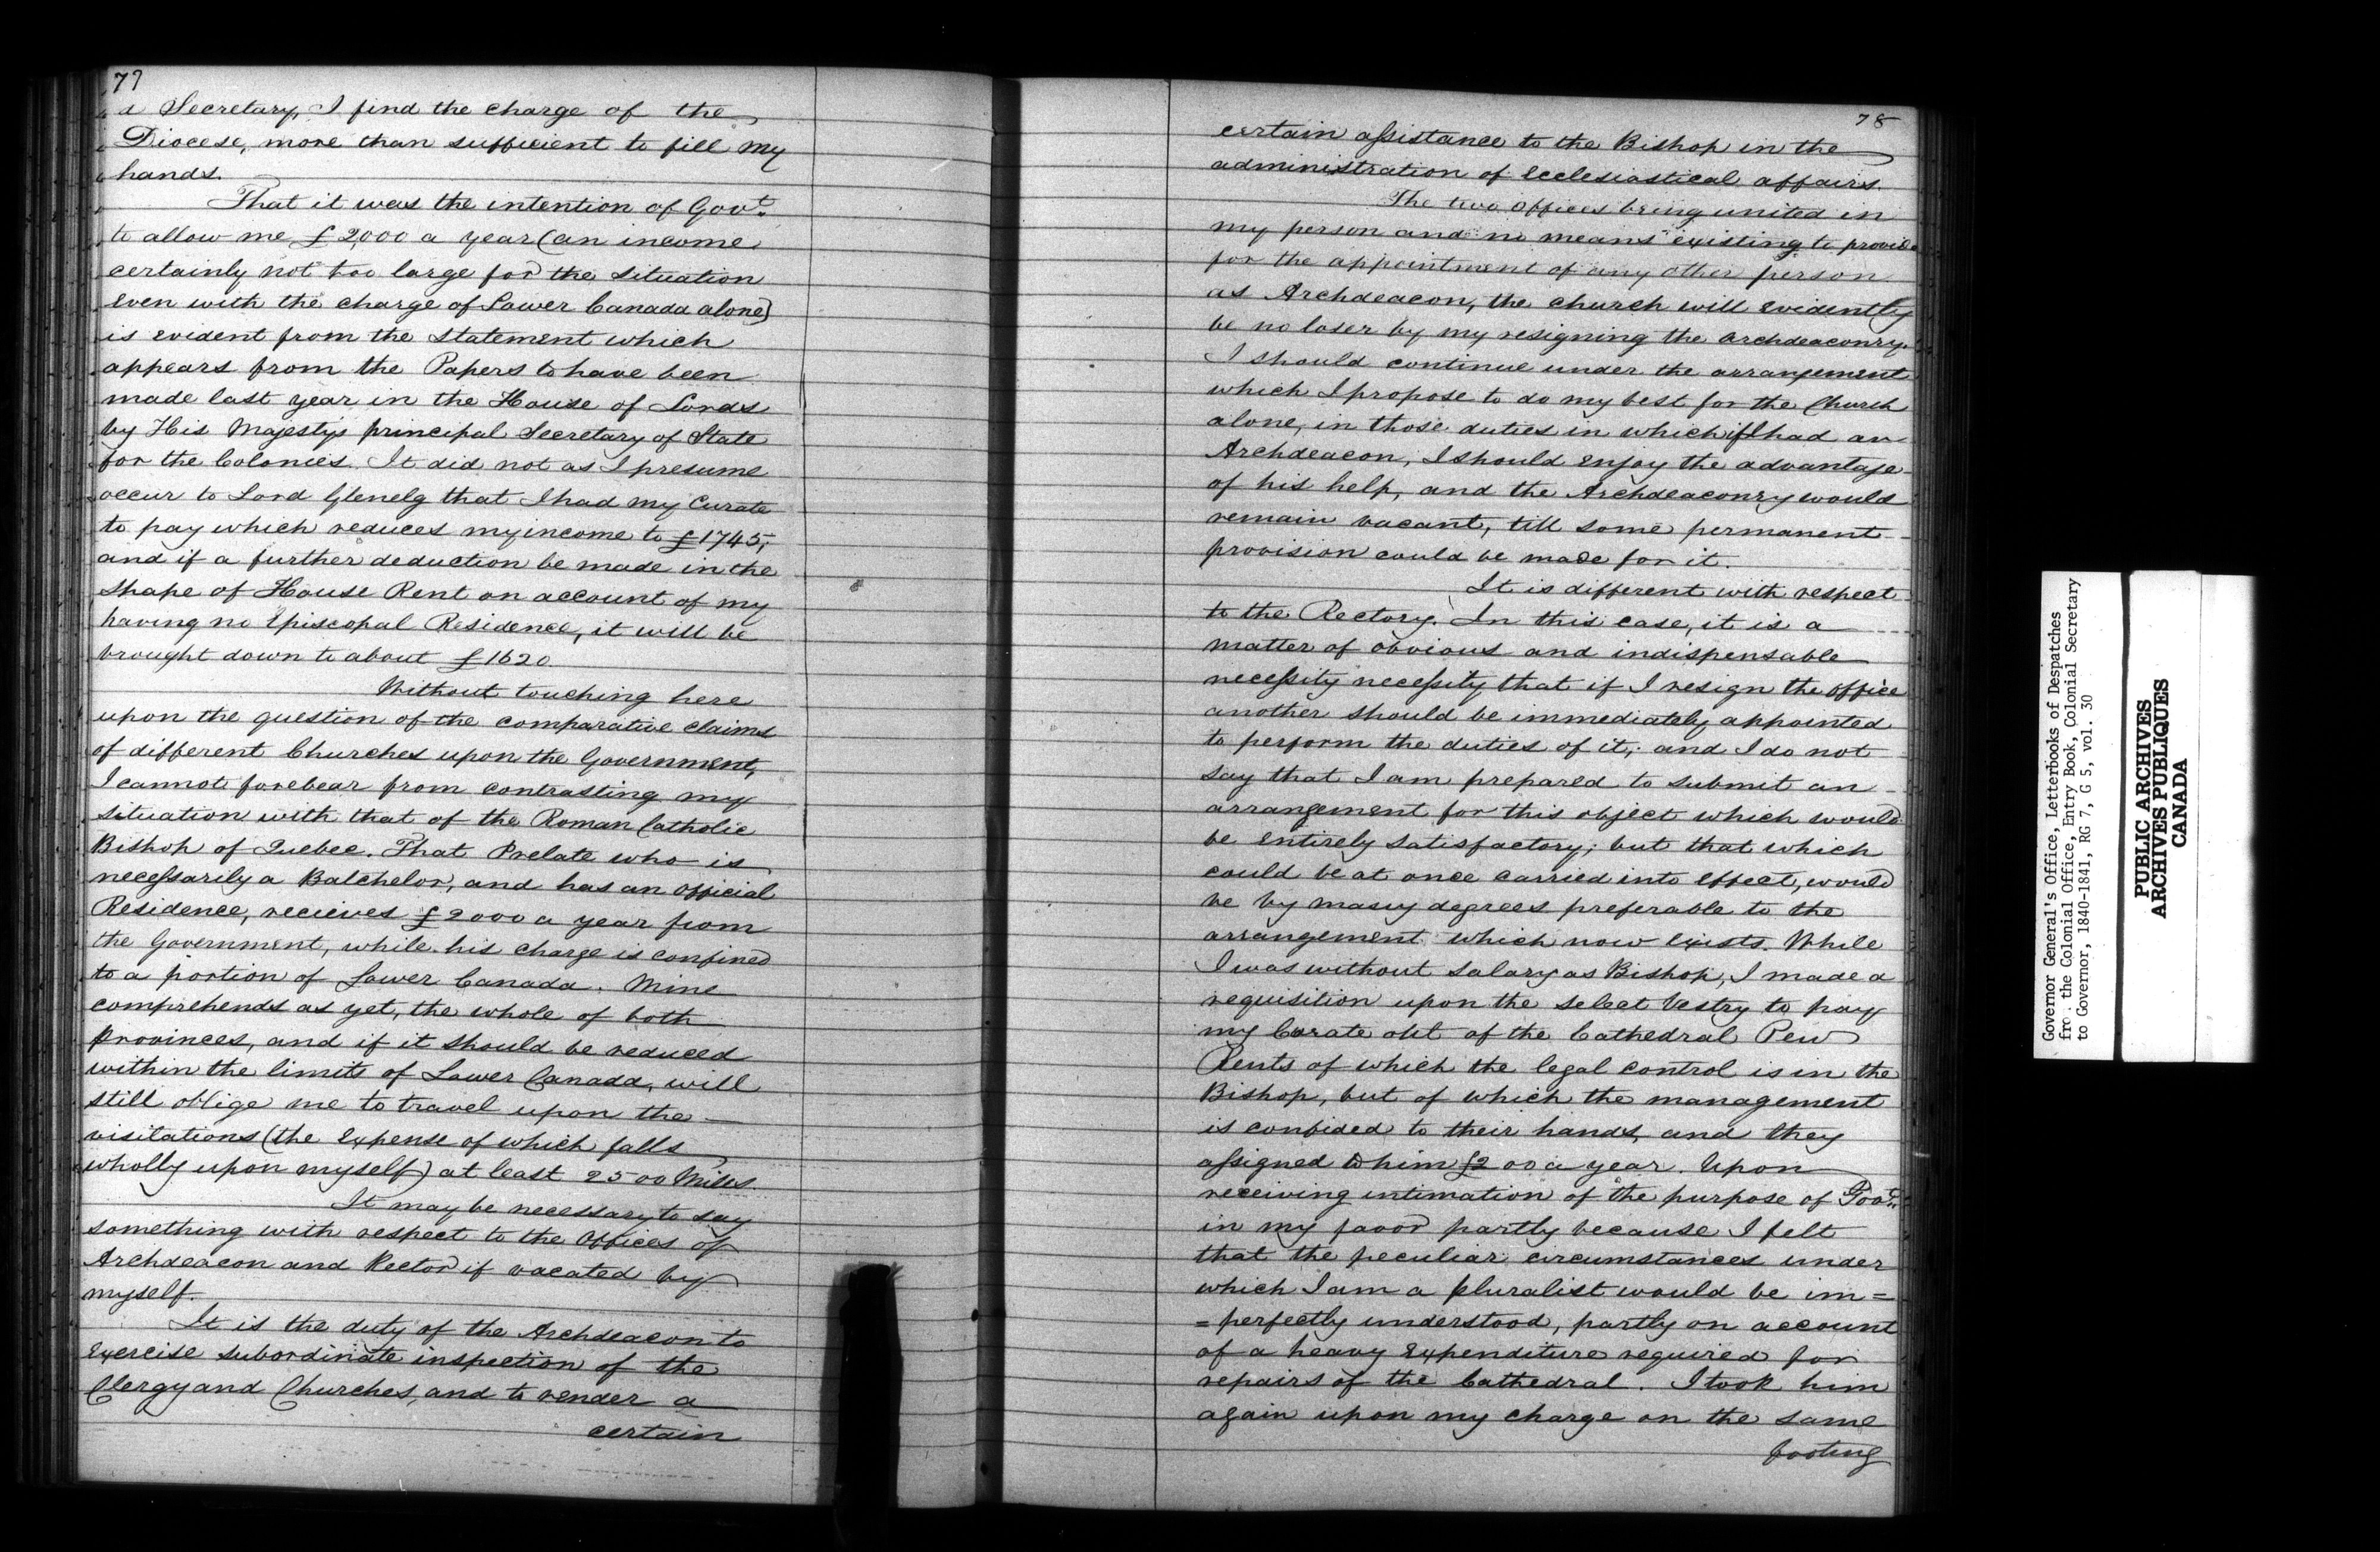 77
a Secretary, I find the charge of the
Diocese, more than sufficient to fill my
hands.
That it was the intention of Govt.
to allow me £2,000 a year (an income
certainly not too large for the situation
even with the charge of Lower Canada alone)
is evident from the statement which
appears from the Papers to have been
made last year in the House of Lords
by His Majestys principal Secretary of State
for the Colonies. It did not as I presume
occur to Lord Glenelg that I had my Curate
to pay which reduces my income to £1745;
and if a further deduction be made in the
shape of House Rent on account of my
having no Episcopal Residence, it will be
brought down to about £1620
Without touching here
upon the question of the comparative claims
of different Churches upon the Government,
I cannot forebear from contrasting my
situation with that of the Roman Catholic
Bishop of Quebec. That Prelate who is
necessarily a Batchelor, and has an official
Residence, recieves £2000 a year from
the Government, while his charge is confined
to a portion of Lower Canada. Mine
comprehends as yet, the whole of both
Provinces, and if it should be reduced
within the limits of Lower Canada, will
still oblige me to travel upon the
visitations (the expense of which falls
wholly upon myself) at least 2500 Miles.
It may be necessary to say
something with respect to the Offices of
Archdeacon and Rector if vacated by
myself.
It is the duty of the Archdeacon to
exercise subordinate inspection of the
Clergy and Churches, and to render a
certain
78
certain assistance to the Bishop in the
administration of Ecclesiastical affairs.
The two offices being united in
my person and no means existing to provide
for the appointment of any other person
as Archdeacon, the church will evidently
be no loser by my resigning the Archdeaconry.
I should continue under the arrangement
which I propose to do my best for the Church
alone, in those duties in which if I had an
Archdeacon, I should enjoy the advantage
of his help, and the Archdeaconry would
remain vacant, till some permanent
provision could be made for it.
It is different with respect
to the Rectory. In this case, it is a
matter of obvious and indispensable
necessity necessity that if I resign the office
another should be immediately appointed
to perform the duties of it; and I do not
say that I am prepared to submit an
arrangement for this object which would
be entirely satisfactory; but that which
could be at once carried into effect, would
be by many degrees preferable to the
arrangement which now exists. While
I was without salary as Bishop, I made a
requisition upon the select Vestry to pay
my Curate out of the Cathedral Pew
Rents of which the legal control is in the
Bishop, but of which the management
is confided to their hands, and they
assigned to him £200 a year. Upon
receiving intimation of the purpose of Govt.
in my favor partly because I felt
that the peculiar circumstances under
which I am a pluralist would be im=
=perfectly understood, partly on account
of a heavy expenditure required for
repairs of the Cathedral. I took him
again upon my charge on the same
footing
Governor General's Office, Letterbooks of Despatches
fro. the Colonial Office, Entry Book, Colonial Secretary
to Governor, 1840-1841, RG 7, G 5, vol. 30
PUBLIC ARCHIVES
ARCHIVES PUBLIQUES
CANADA